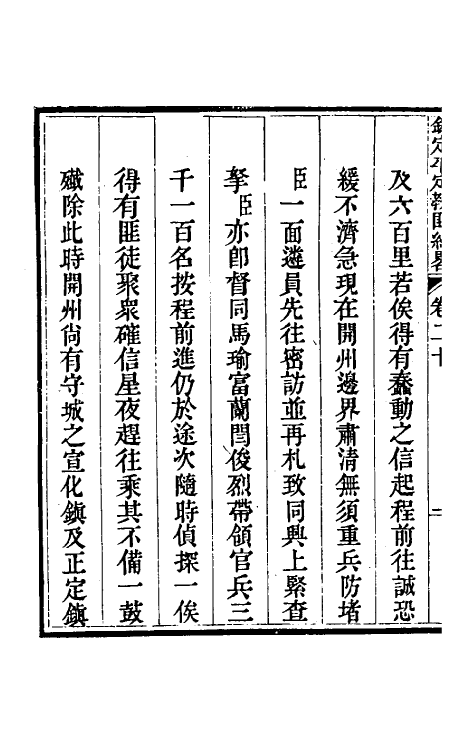 欽定平定教匪紀畧 卷二十 二
及六百里若俟得有蠢動之信起程前往誠恐
緩不濟急現在開州邊界肅清無須重兵防堵
臣一面遴員先往密訪並再札致同興上緊查
拏臣亦卽督同馬瑜富蘭閆俊烈帶領官兵三
千一百名按程前進仍於途次隨時偵探一俟
得有匪徒聚衆確信星夜趕往乘其不備一鼓
殲除此時開州尙有守城之宣化鎮及正定鎮